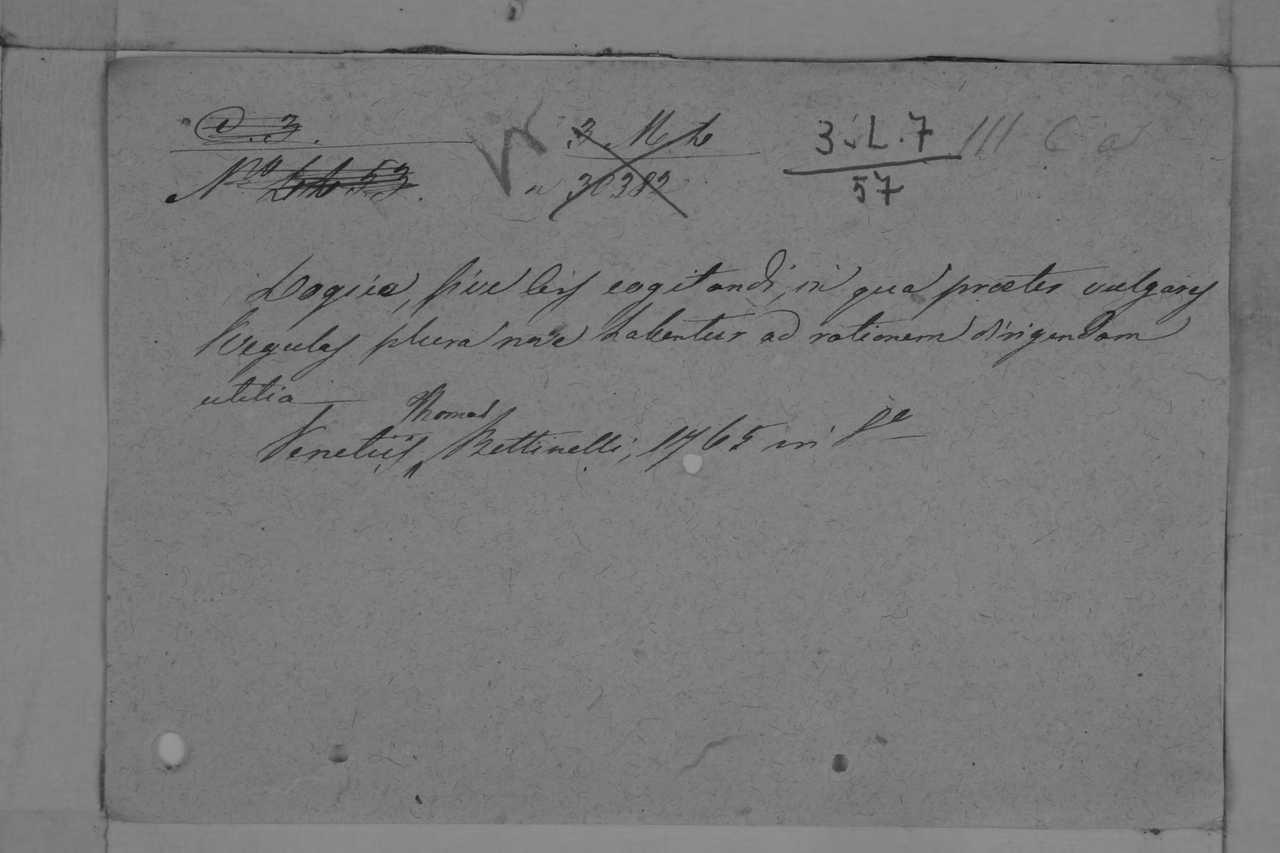 C. 3. 3. M. 3 . L . 7 III C a
Nro 53. a 30382 57
Logica, sive Ars cogitandi, in qua præter vulgares
Regulas plura nova habentur ad rationem dirigendam
utilia
Thomas
Venetiis Bettinelli, 1765 in 8e